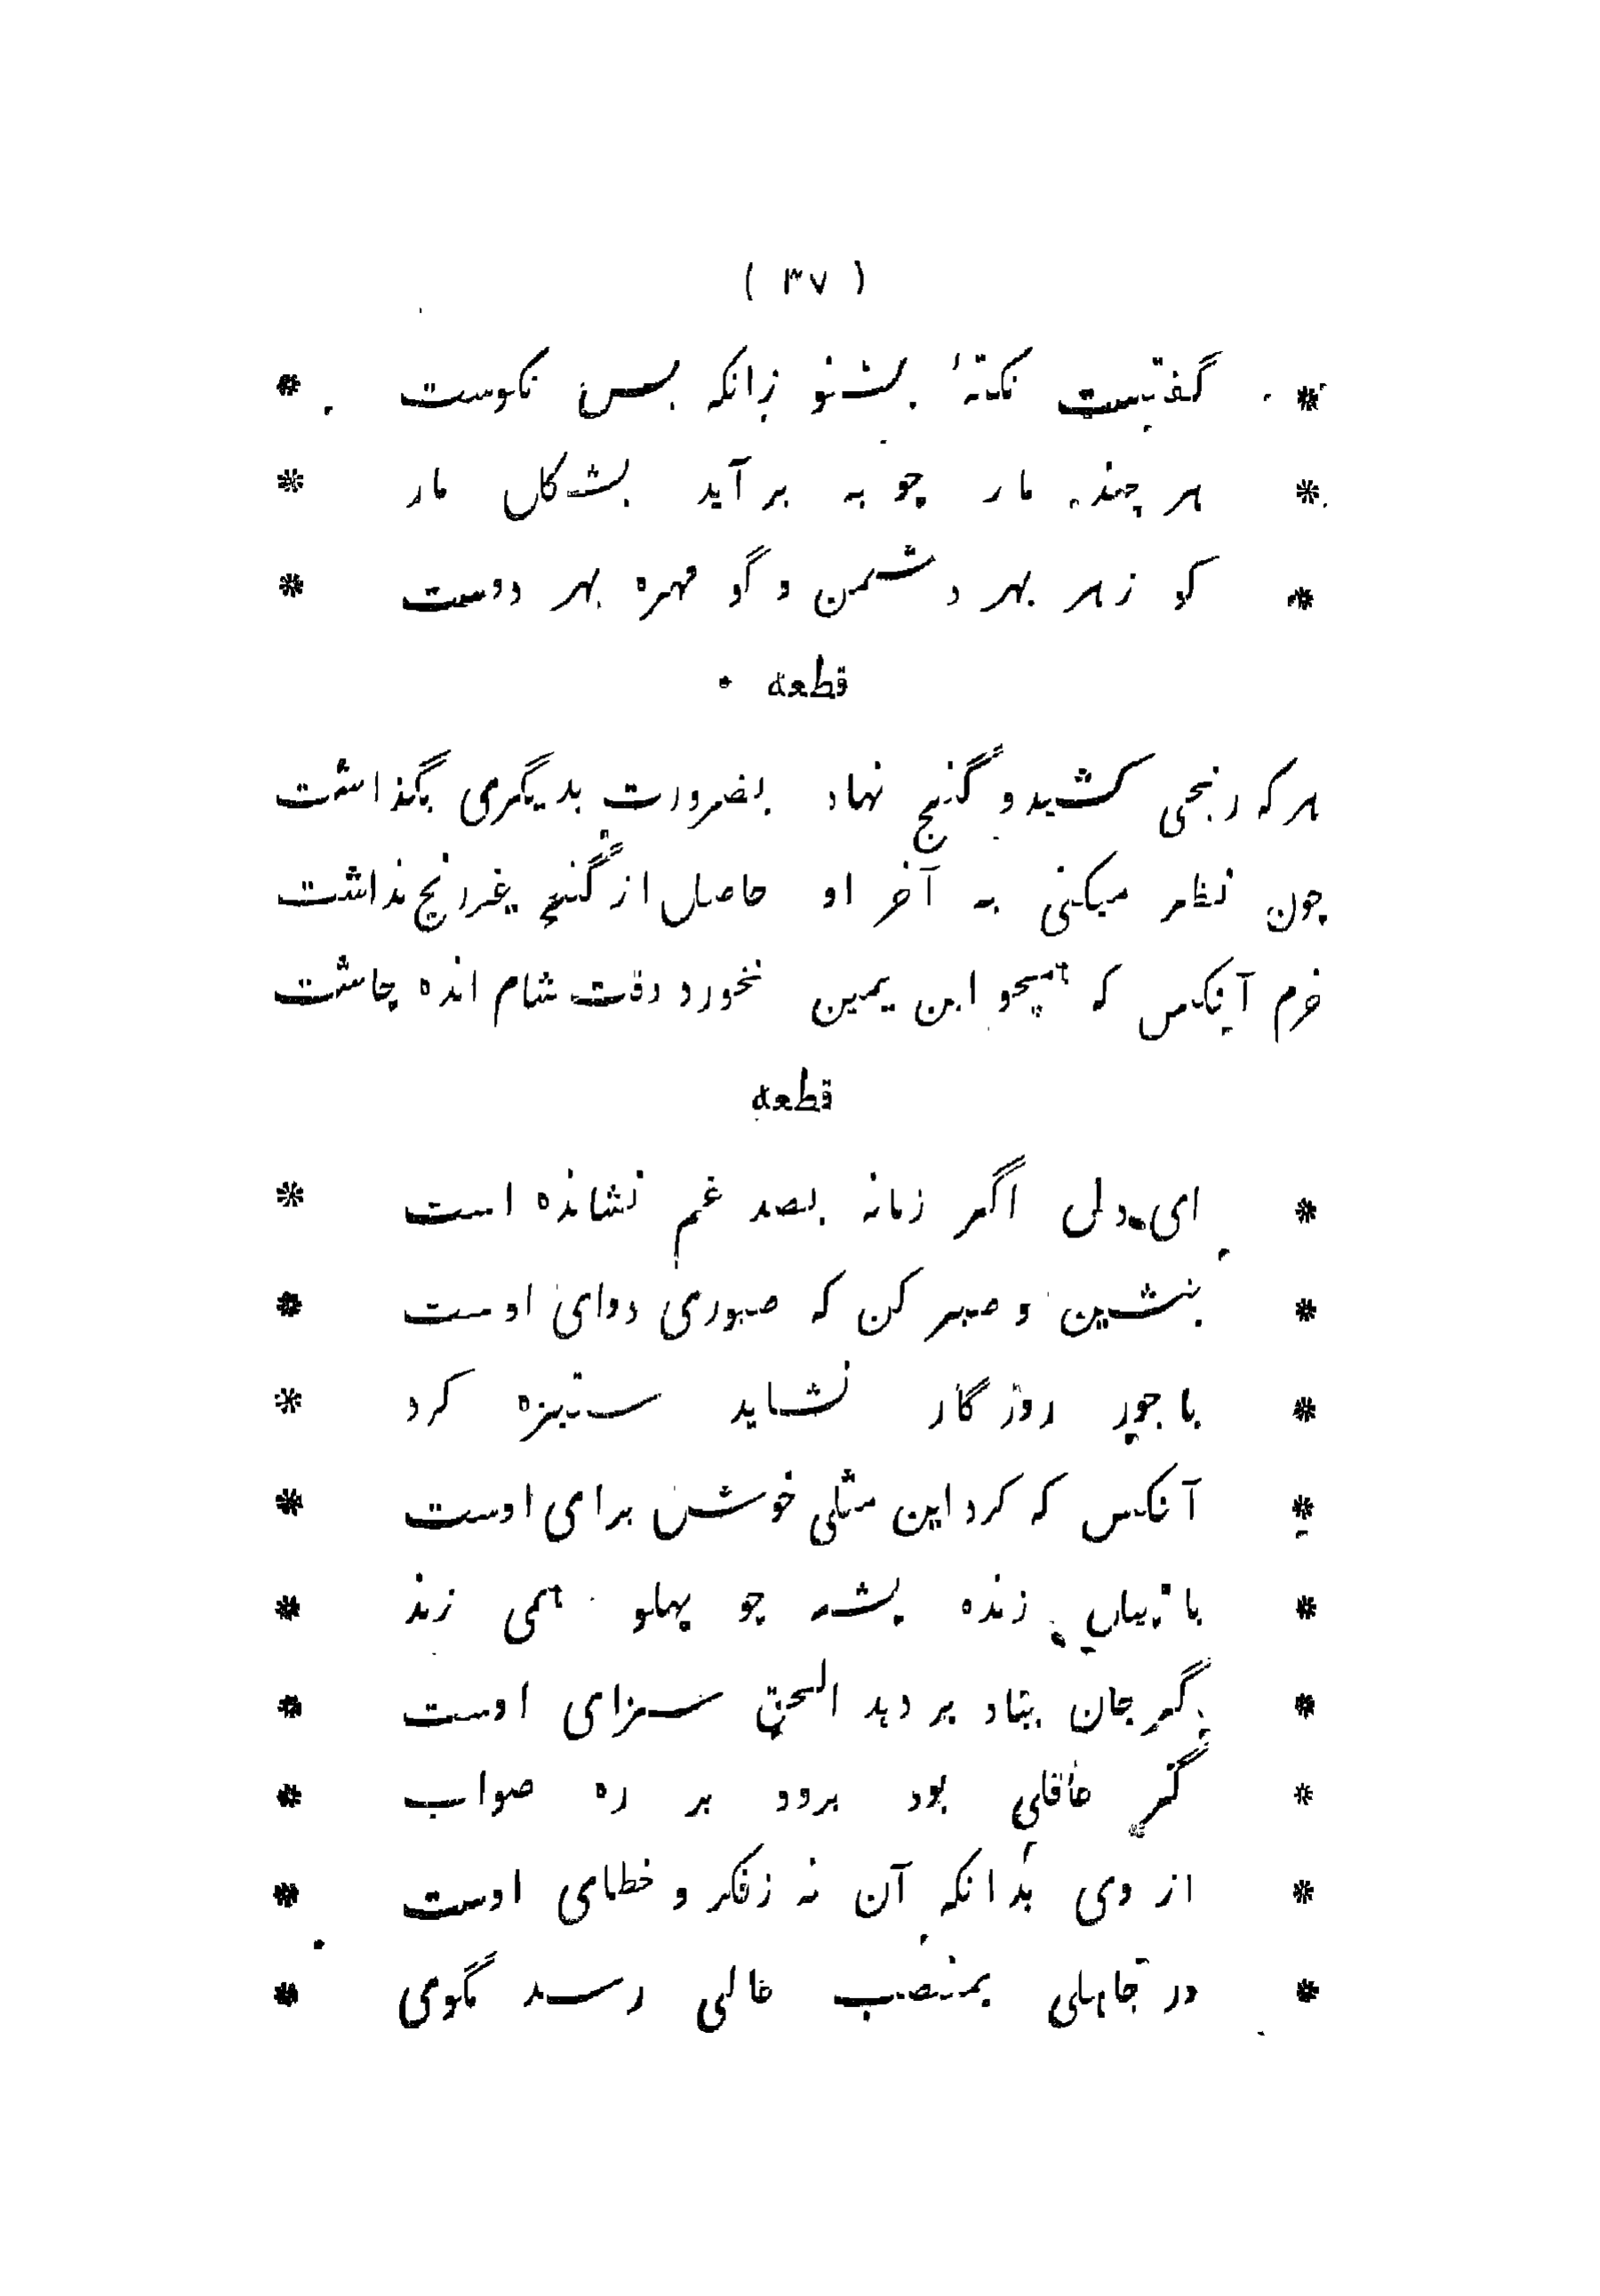 ( ۳۷ )
* گفتیست نکتهٔ بشنو زانکه بس نکوست *
* هر چند مار چو به بر آید بشکل مار *
* کو زهر بهر دشمن و گو مهره بهر دوست *
قطعه
هر که رنجی کشید و گنج نهاد بضرورت بدیگری بگذاشت
چون نظر میکنی به آخر او حاصل از گنج غیر رنج نداشت
خرم آنکس که همچو ابن یمین نخورد وقت شام انده چاشت
قطعه
* ای دل اگر زمانه بصد غم نشانده است *
* بنشین و صبر کن که صبوری دوای اوست *
* با جور روزگار نشاید ستیزه کرد *
* آنکس که کرد این مثلی خوش برای اوست *
* با پیل زنده پشه چو پهلو همی زند *
* گر جان بباد بر دهد الحق سزای اوست *
* گر عاقلی بود برود بر ره صواب *
* از وی بدانکه آن نه ز فکر و خطای اوست *
* در جاهلی بمنصب عالی رسد مگوی *